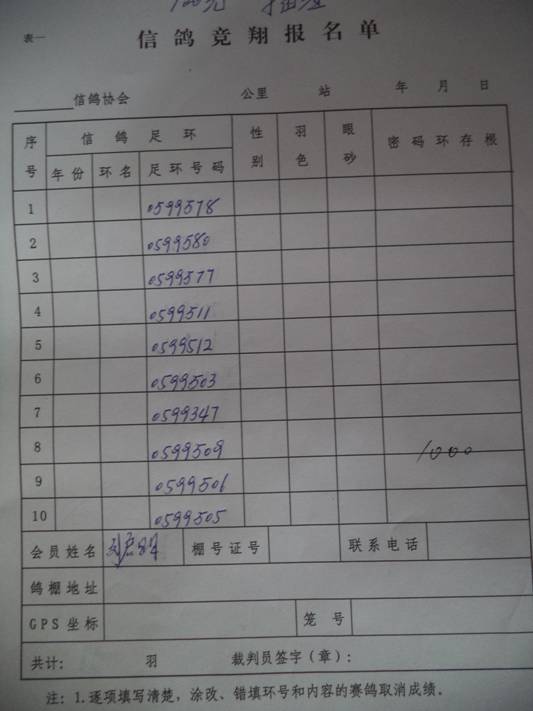 表一
信鸽竞翔报名单
信鸽协会 公里 站 年 月 日
序号 信鸽足环 性别 羽色 眼砂 密码环存根
年份 环名 足环号码
1 0599578
2 0599580
3 0599577
4 0599511
5 0599512
6 0599503
7 0599347
8 0599509 1000
9 0599506
10 0599505
会员姓名 棚号证号 联系电话
鸽棚地址
GPS坐标 笼号
共计: 羽 裁判员签字(章):
注: 1.逐项填写清楚,涂改、错填环号和内容的赛鸽取消成绩。